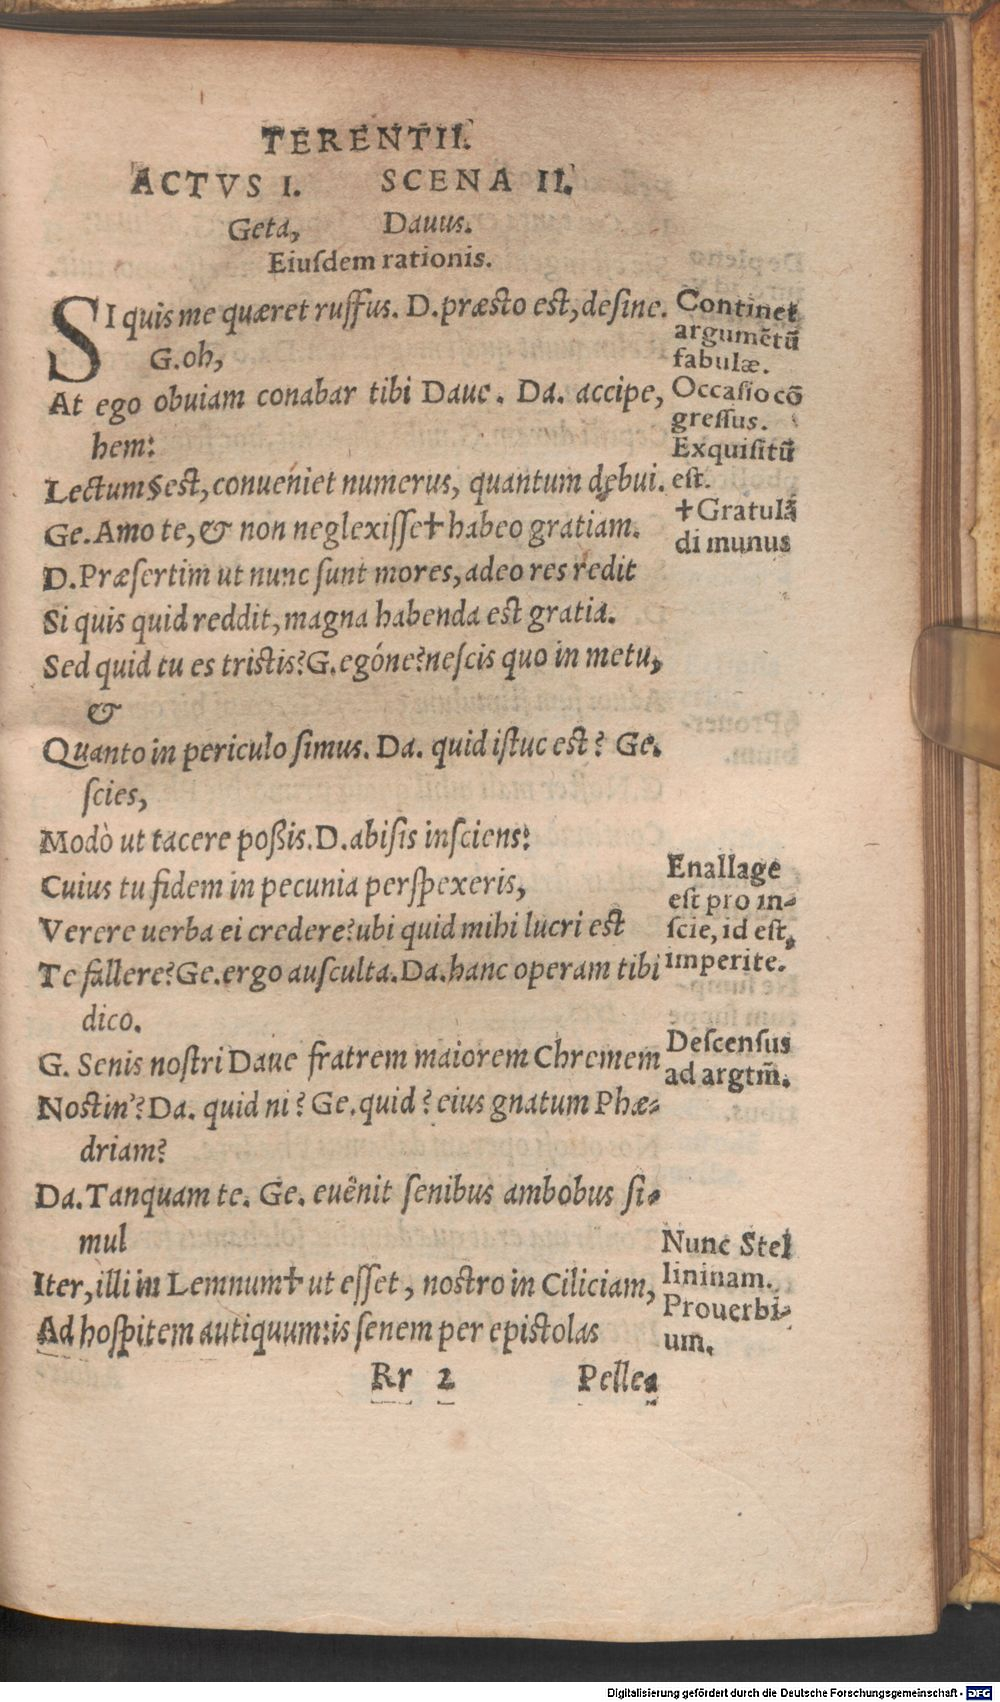 TERENTII.
ACTVS I. SCENA II.
Geta, Dauus.
Eiusdem rationis.
SI quis me quæret ruffus. D. præsto est, desine.
G. oh,
At ego obuiam conabar tibi Daue. Da. accipe,
hem:
Lectum § est, conueniet numerus, quantum debui.
Ge. Amo te, & non neglexisse † habeo gratiam.
D. Præsertim ut nunc sunt mores, adeo res redit
Si quis quid reddit, magna habenda est gratia.
Sed quid tu es tristis? G. egóne? nescis quo in metu,
&
Quanto in periculo simus. Da. quid istuc est? Ge.
scies,
Modò ut tacere poßis. D. abisis insciens:
Cuius tu fidem in pecunia perspexeris,
Verere uerba ei credere? ubi quid mihi lucri est
Te fallere? Ge. ergo ausculta. Da. hanc operam tibi
dico.
G. Senis nostri Daue fratrem maiorem Chremem
Nostin'? Da. quid ni? Ge. quid? eius gnatum Phæ-
driam?
Da. Tanquam te. Ge. euênit senibus ambobus si-
mul
Iter, illi in Lemnum † ut esset, nostro in Ciliciam,
Ad hospitem autiquum: is senem per epistolas
Rr 2 Pelle-
Continet
argumẽtũ
fabulæ.
Occasio cõ
gressus.
Exquisitũ
est.
† Gratulã
di munus
Enallage
est pro in-
scie, id est,
imperite.
Descensus
ad argtm̃.
Nunc Stel
lininam.
Prouerbi-
um.
Digitalisierung gefördert durch die Deutsche Forschungsgemeinschaft - DFG